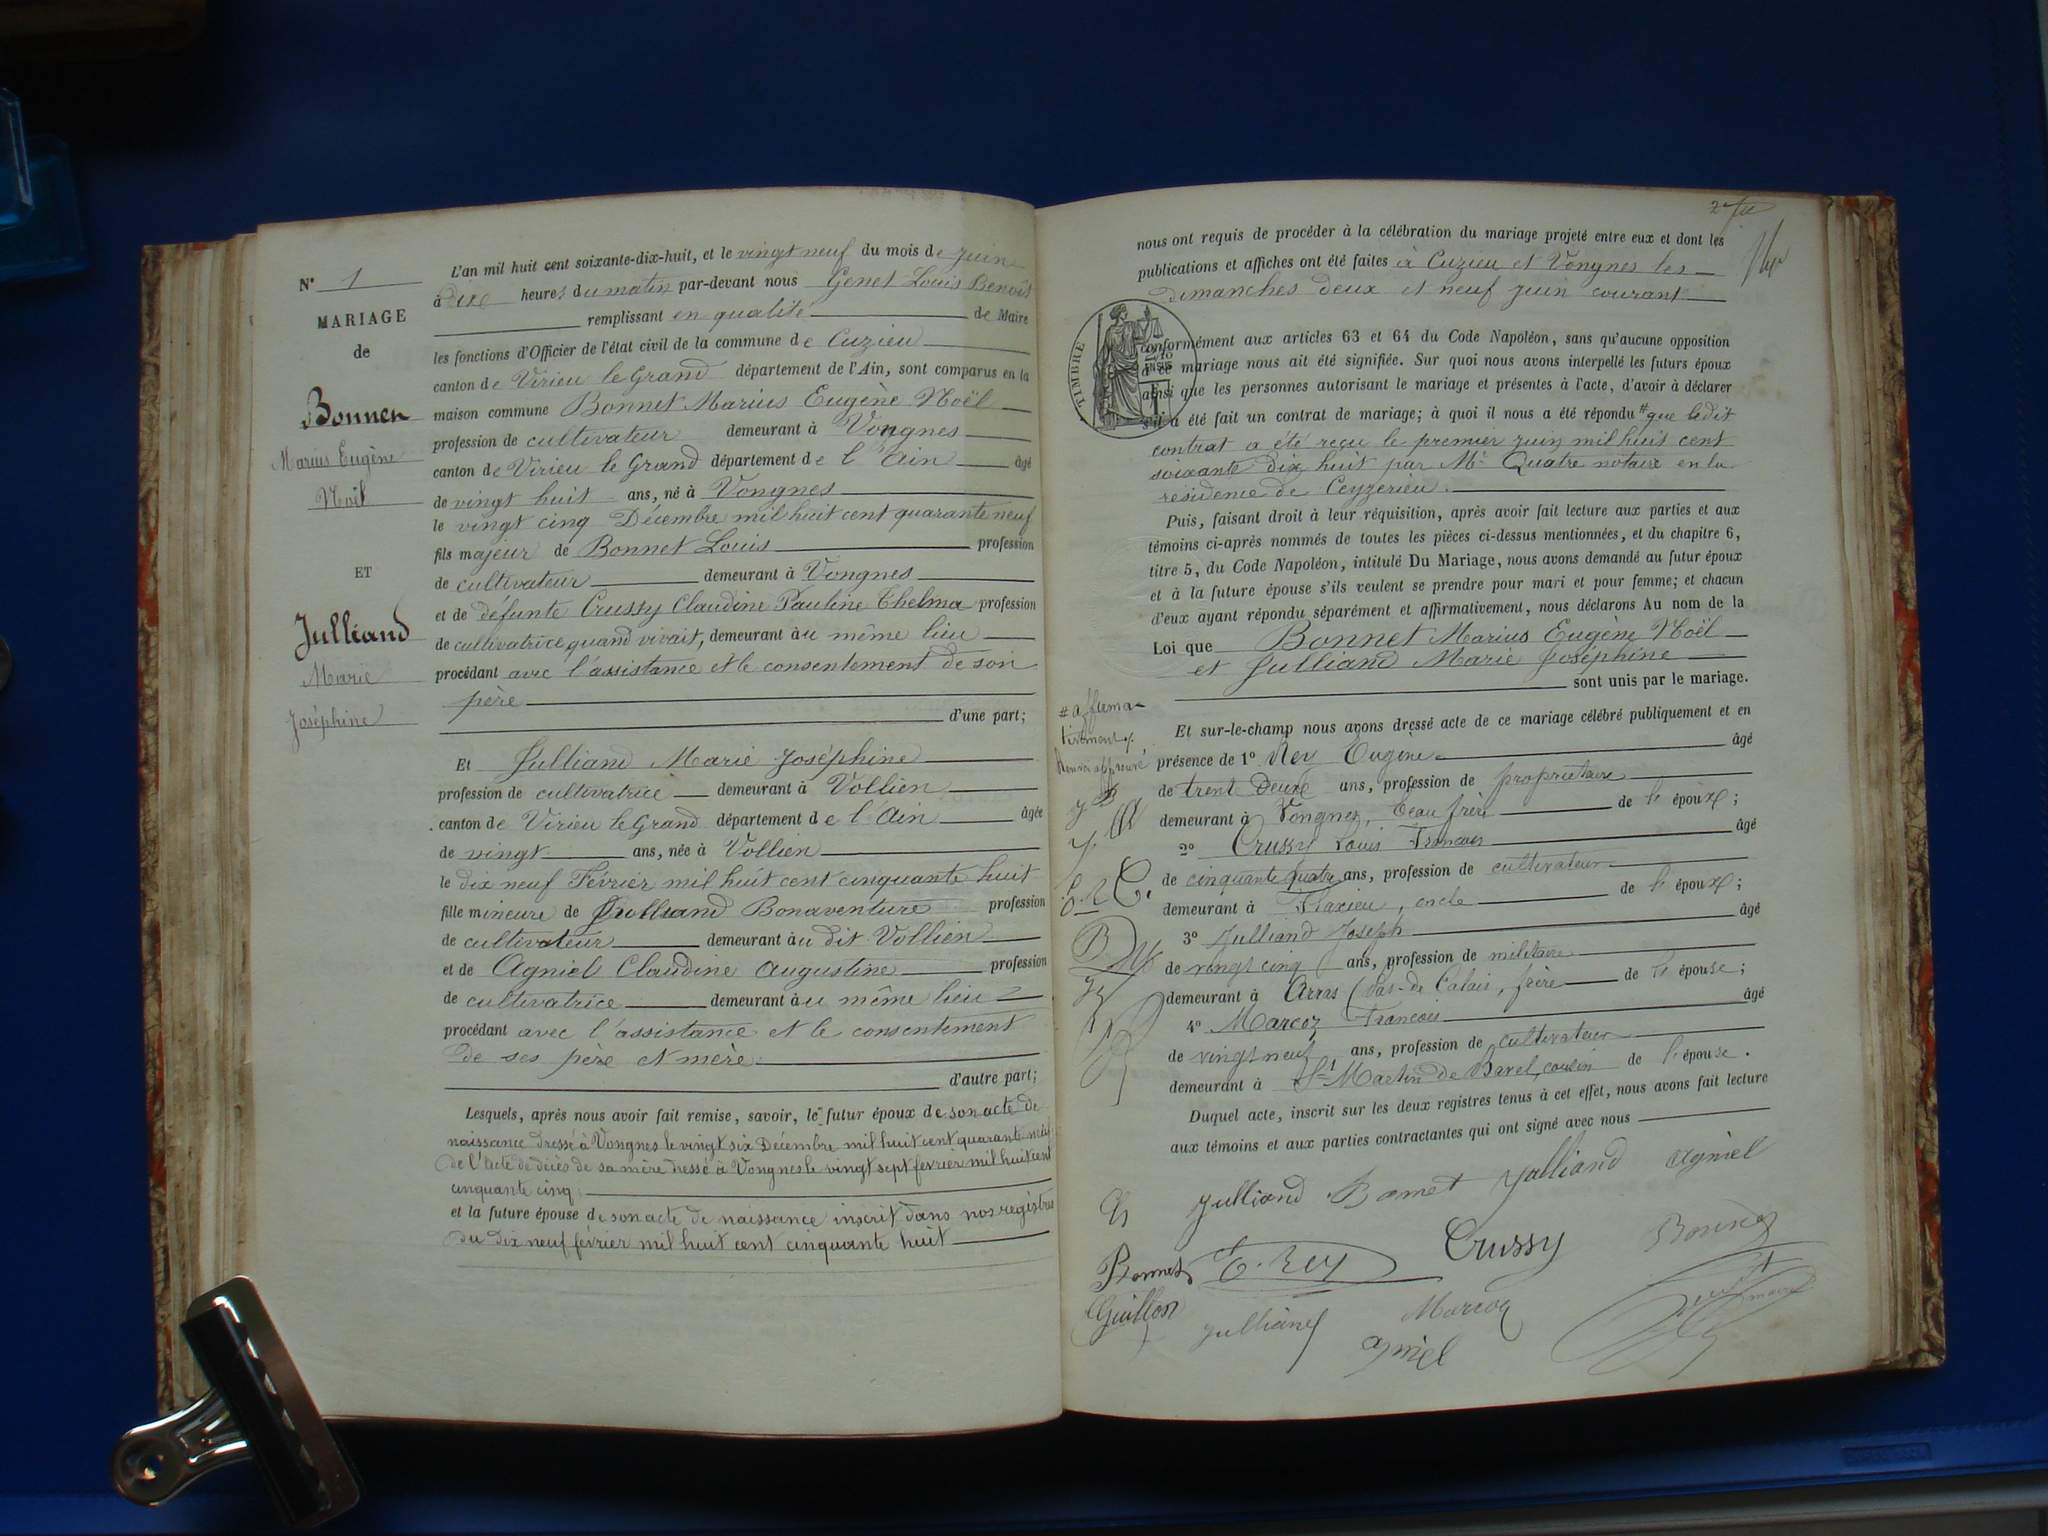 N° 1
MARIAGE
de
Bonnet
Marius Eugène
Noël
ET
Julliand
Marie
Joséphine
L'an mil huit cent soixante-dix-huit, et le vingt neuf du mois de Juin
à Dix heures du matin par-devant nous Genet Louis Benoît
remplissant en qualité de Maire
les fonctions d'Officier de l'état civil de la commune de Cuzieu
canton de Virieu le Grand département de l'Ain, sont comparus en la
maison commune Bonnet Marius Eugène Noël
profession de cultivateur demeurant à Vongnes
canton de Virieu le Grand département de l'Ain âgé
de vingt huit ans, né à Vongnes
le vingt cinq Décembre mil huit cent quarante neuf
fils majeur de Bonnet Louis profession
de cultivateur demeurant à Vongnes
et de défunte Crussy Claudine Pauline Thelma profession
de cultivatrice quand vivait, demeurant au même lieu
procédant avec l'assistance et le consentement de son
père
d'une part;
Et Julliand Marie Joséphine
profession de cultivatrice demeurant à Vollien
canton de Virieu le Grand département de l'Ain âgée
de vingt ans, née à Vollien
le dix neuf Février mil huit cent cinquante huit
fille mineure de Julliand Bonaventure profession
de cultivateur demeurant au dit Vollien
et de Agniel Claudine Augustine profession
de cultivatrice demeurant au même lieu
procédant avec l'assistance et le consentement
de ses père et mère
d'autre part;
Lesquels, après nous avoir fait remise, savoir, le futur époux de son acte de
naissance dressé à Vongnes le vingt six Décembre mil huit cent quarante neuf
de l'acte de décès de sa mère dressé à Vongnes le vingt sept fevrier mil huit cent
cinquante cinq
et la future épouse de son acte de naissance inscrit dans nos registres
du dix neuf février mil huit cent cinquante huit
nous ont requis de procéder à la célébration du mariage projeté entre eux et dont les
publications et affiches ont été faites à Cuzieu et Vongnes les
dimanches deux et neuf juin courant
TIMBRE
conformément aux articles 63 et 64 du Code Napoléon, sans qu'aucune opposition
à ce mariage nous ait été signifiée. Sur quoi nous avons interpellé les futurs époux
ainsi que les personnes autorisant le mariage et présentes à l'acte, d'avoir à déclarer
s'il a été fait un contrat de mariage; à quoi il nous a été répondu # que ledit
contrat a été reçu le premier juin mil huit cent
soixante dix huit par Me Quatre notaire en la
résidence de Ceyzerieu.
Puis, faisant droit à leur réquisition, après avoir fait lecture aux parties et aux
témoins ci-après nommés de toutes les pièces ci-dessus mentionnées, et du chapitre 6,
titre 5, du Code Napoléon, intitulé Du Mariage, nous avons demandé au futur époux
et à la future épouse s'ils veulent se prendre pour mari et pour femme; et chacun
d'eux ayant répondu séparément et affirmativement, nous déclarons Au nom de la
Loi que Bonnet Marius Eugène Noël
et Julliand Marie Joséphine
sont unis par le mariage.
# affirma-
tivement
Renvoi approuvé
Et sur-le-champ nous avons dressé acte de ce mariage célébré publiquement et en
présence de 1° Rey Eugène âgé
de trent Deux ans, profession de propriétaire
demeurant à Vongnes, beau frère de l'époux;
2° Crussy Louis François âgé
de cinquante quatre ans, profession de cultivateur
demeurant à Flaxieu, oncle de l'époux;
3° Julliand Joseph âgé
de vingt cinq ans, profession de militaire
demeurant à Arras (Pas-de Calais, frère de l'épouse;
4° Marcoz François âgé
de vingt neuf ans, profession de cultivateur
demeurant à St Martin de Bavel, cousin de l'épouse.
Duquel acte, inscrit sur les deux registres tenus à cet effet, nous avons fait lecture
aux témoins et aux parties contractantes qui ont signé avec nous
Julliand Bonnet Julliand Agniel
Crussy
Bonnet E. Rey
Guillon Julliand Marcoz
Agniel
maire